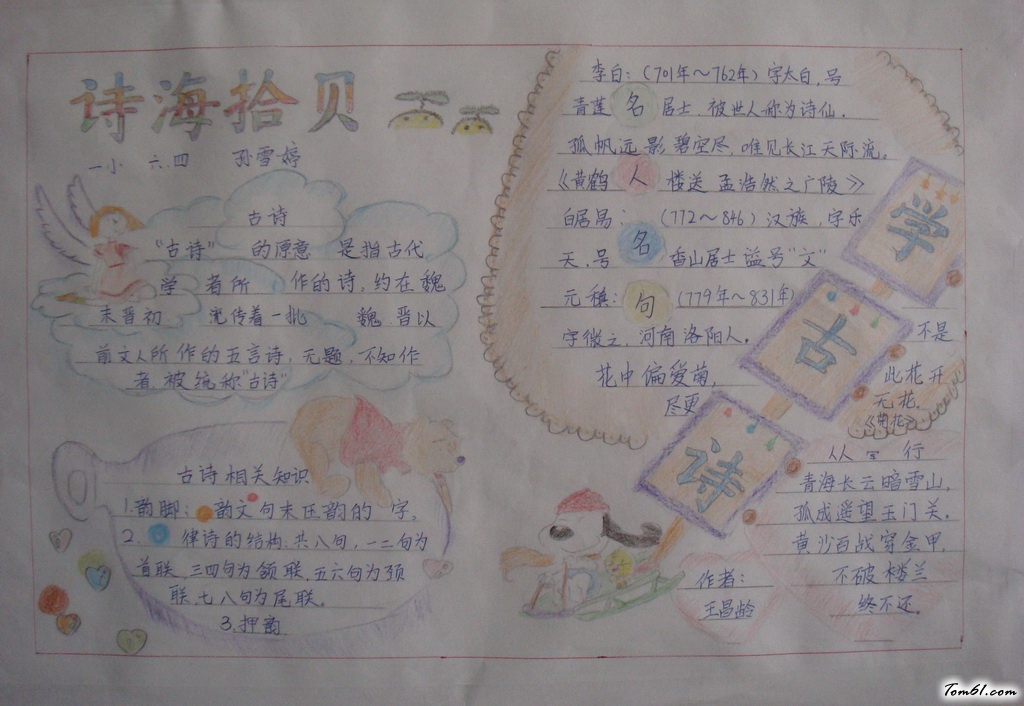 诗海拾贝
一小 六.四 孙雪婷
古诗
"古诗" 的原意 是指古代
学者所作的诗,约在魏
末晋初 流传着一批 魏.晋以
前文人所作的五言诗,无题,不知作
者,被统称"古诗"
古诗相关知识
1.韵脚: 韵文句末压韵的字.
2. 律诗的结构:共八句,一二句为
首联,三四句为颔联,五六句为颈
联,七八句为尾联.
3.押韵
李白:(701年~762年)字太白,号
青莲居士.被世人称为诗仙.
孤帆远影碧空尽,唯见长江天际流。
《黄鹤楼送孟浩然之广陵》
白居易: (772~846)汉族.字乐
天.号香山居士谥号"文"
元稹: (779年~831年)
字微之,河南洛阳人。
花中偏爱菊,
尽更
不是
此花开
无花.
《菊花》
名
人
名
句
学
古
诗
从军行
青海长云暗雪山,
孤成遥望玉门关.
黄沙百战穿金甲,
不破楼兰
终不还.
作者:
王昌龄
Tom61.com